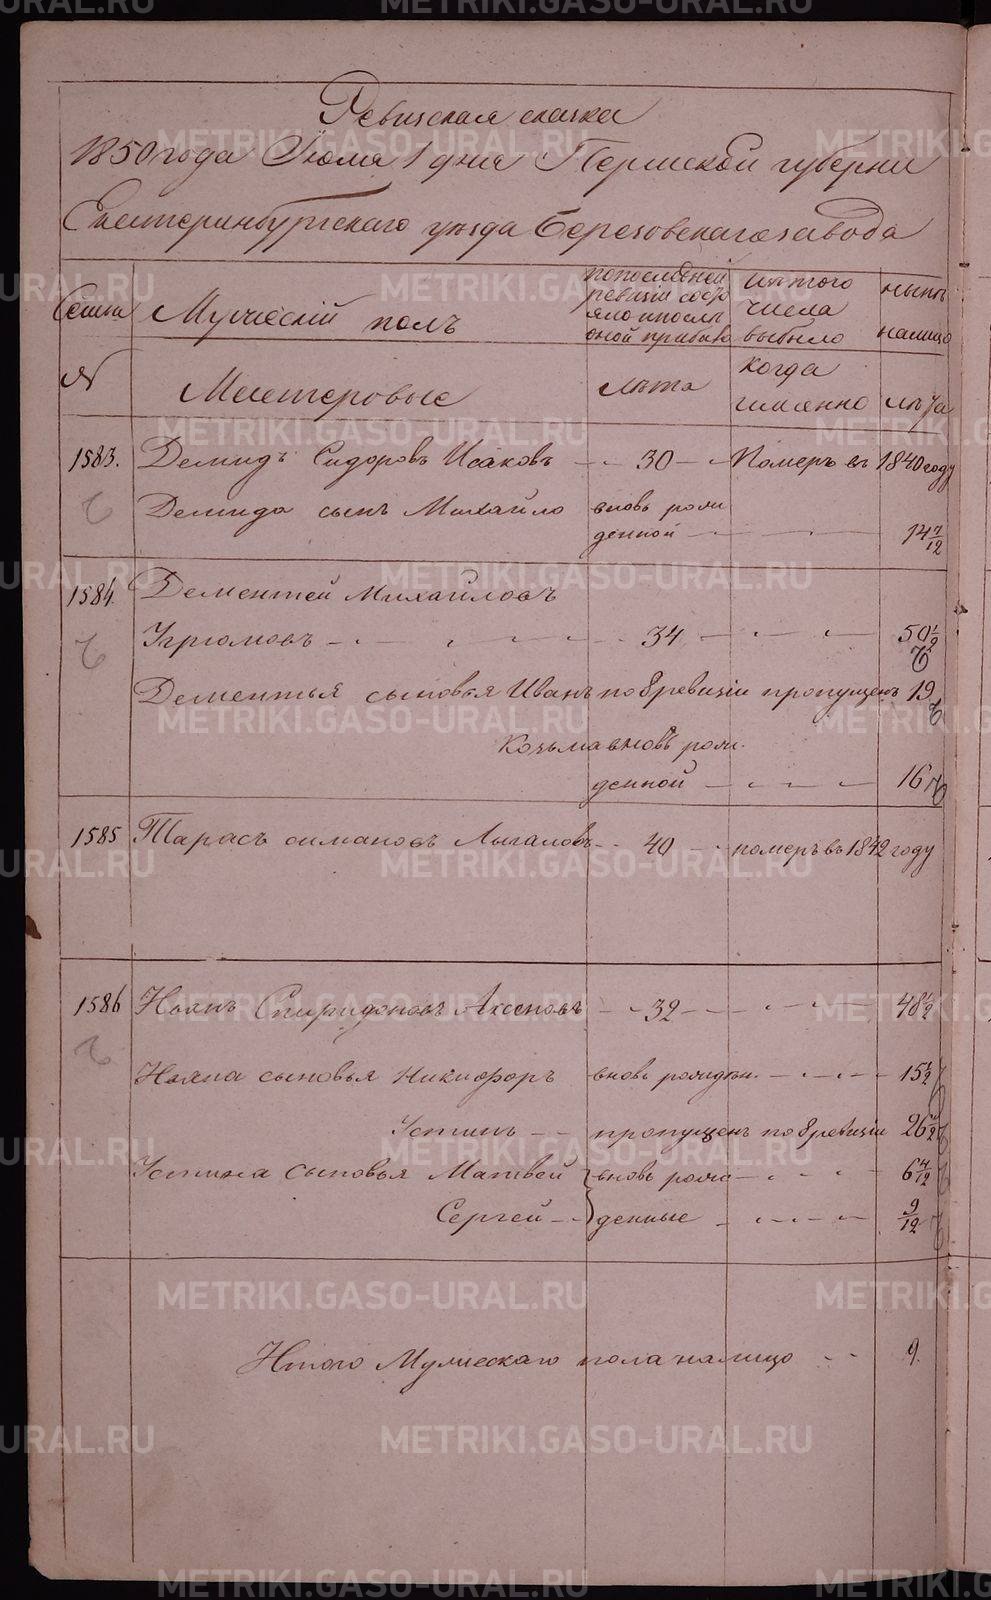 Ревизская сказка
1850 года Июля 1 дня Пермской губернии
Екатеринбургского уезда Березовскаго завода
Семьи
Мужеский полъ
по последней ревизiи состояло и после оной прибыло
изъ того числа выбыло
ныне налицо
№
Мастеровые
лета
когда имянно
лета
1583. Демидъ Сидоровъ Исаковъ 30 Померъ въ 1840 году
Демида сынъ Михайло вновь рож
денной 14 7/12
1584. Дементей Михайловъ
Угрюмовъ 34 50 1/2
Дементья сыновья Иванъ по 8 ревизiи пропущенъ 19
Козьма вновь рож.
денной 16
1585 Тарасъ Симановъ 40 померъ въ 1842 году
1586 Спиридоновъ Аксеновъ 32 48 1/2
сыновья Никифоръ вновь рожден. 15 1/2
Устинъ пропущенъ по 8 ревизiи 26
Устина сыновья Матвей вновь рож 6 4/12
Сергей денные 9/12
Итого Мужескаго пола налицо 9.
METRIKI.GASO-URAL.RU